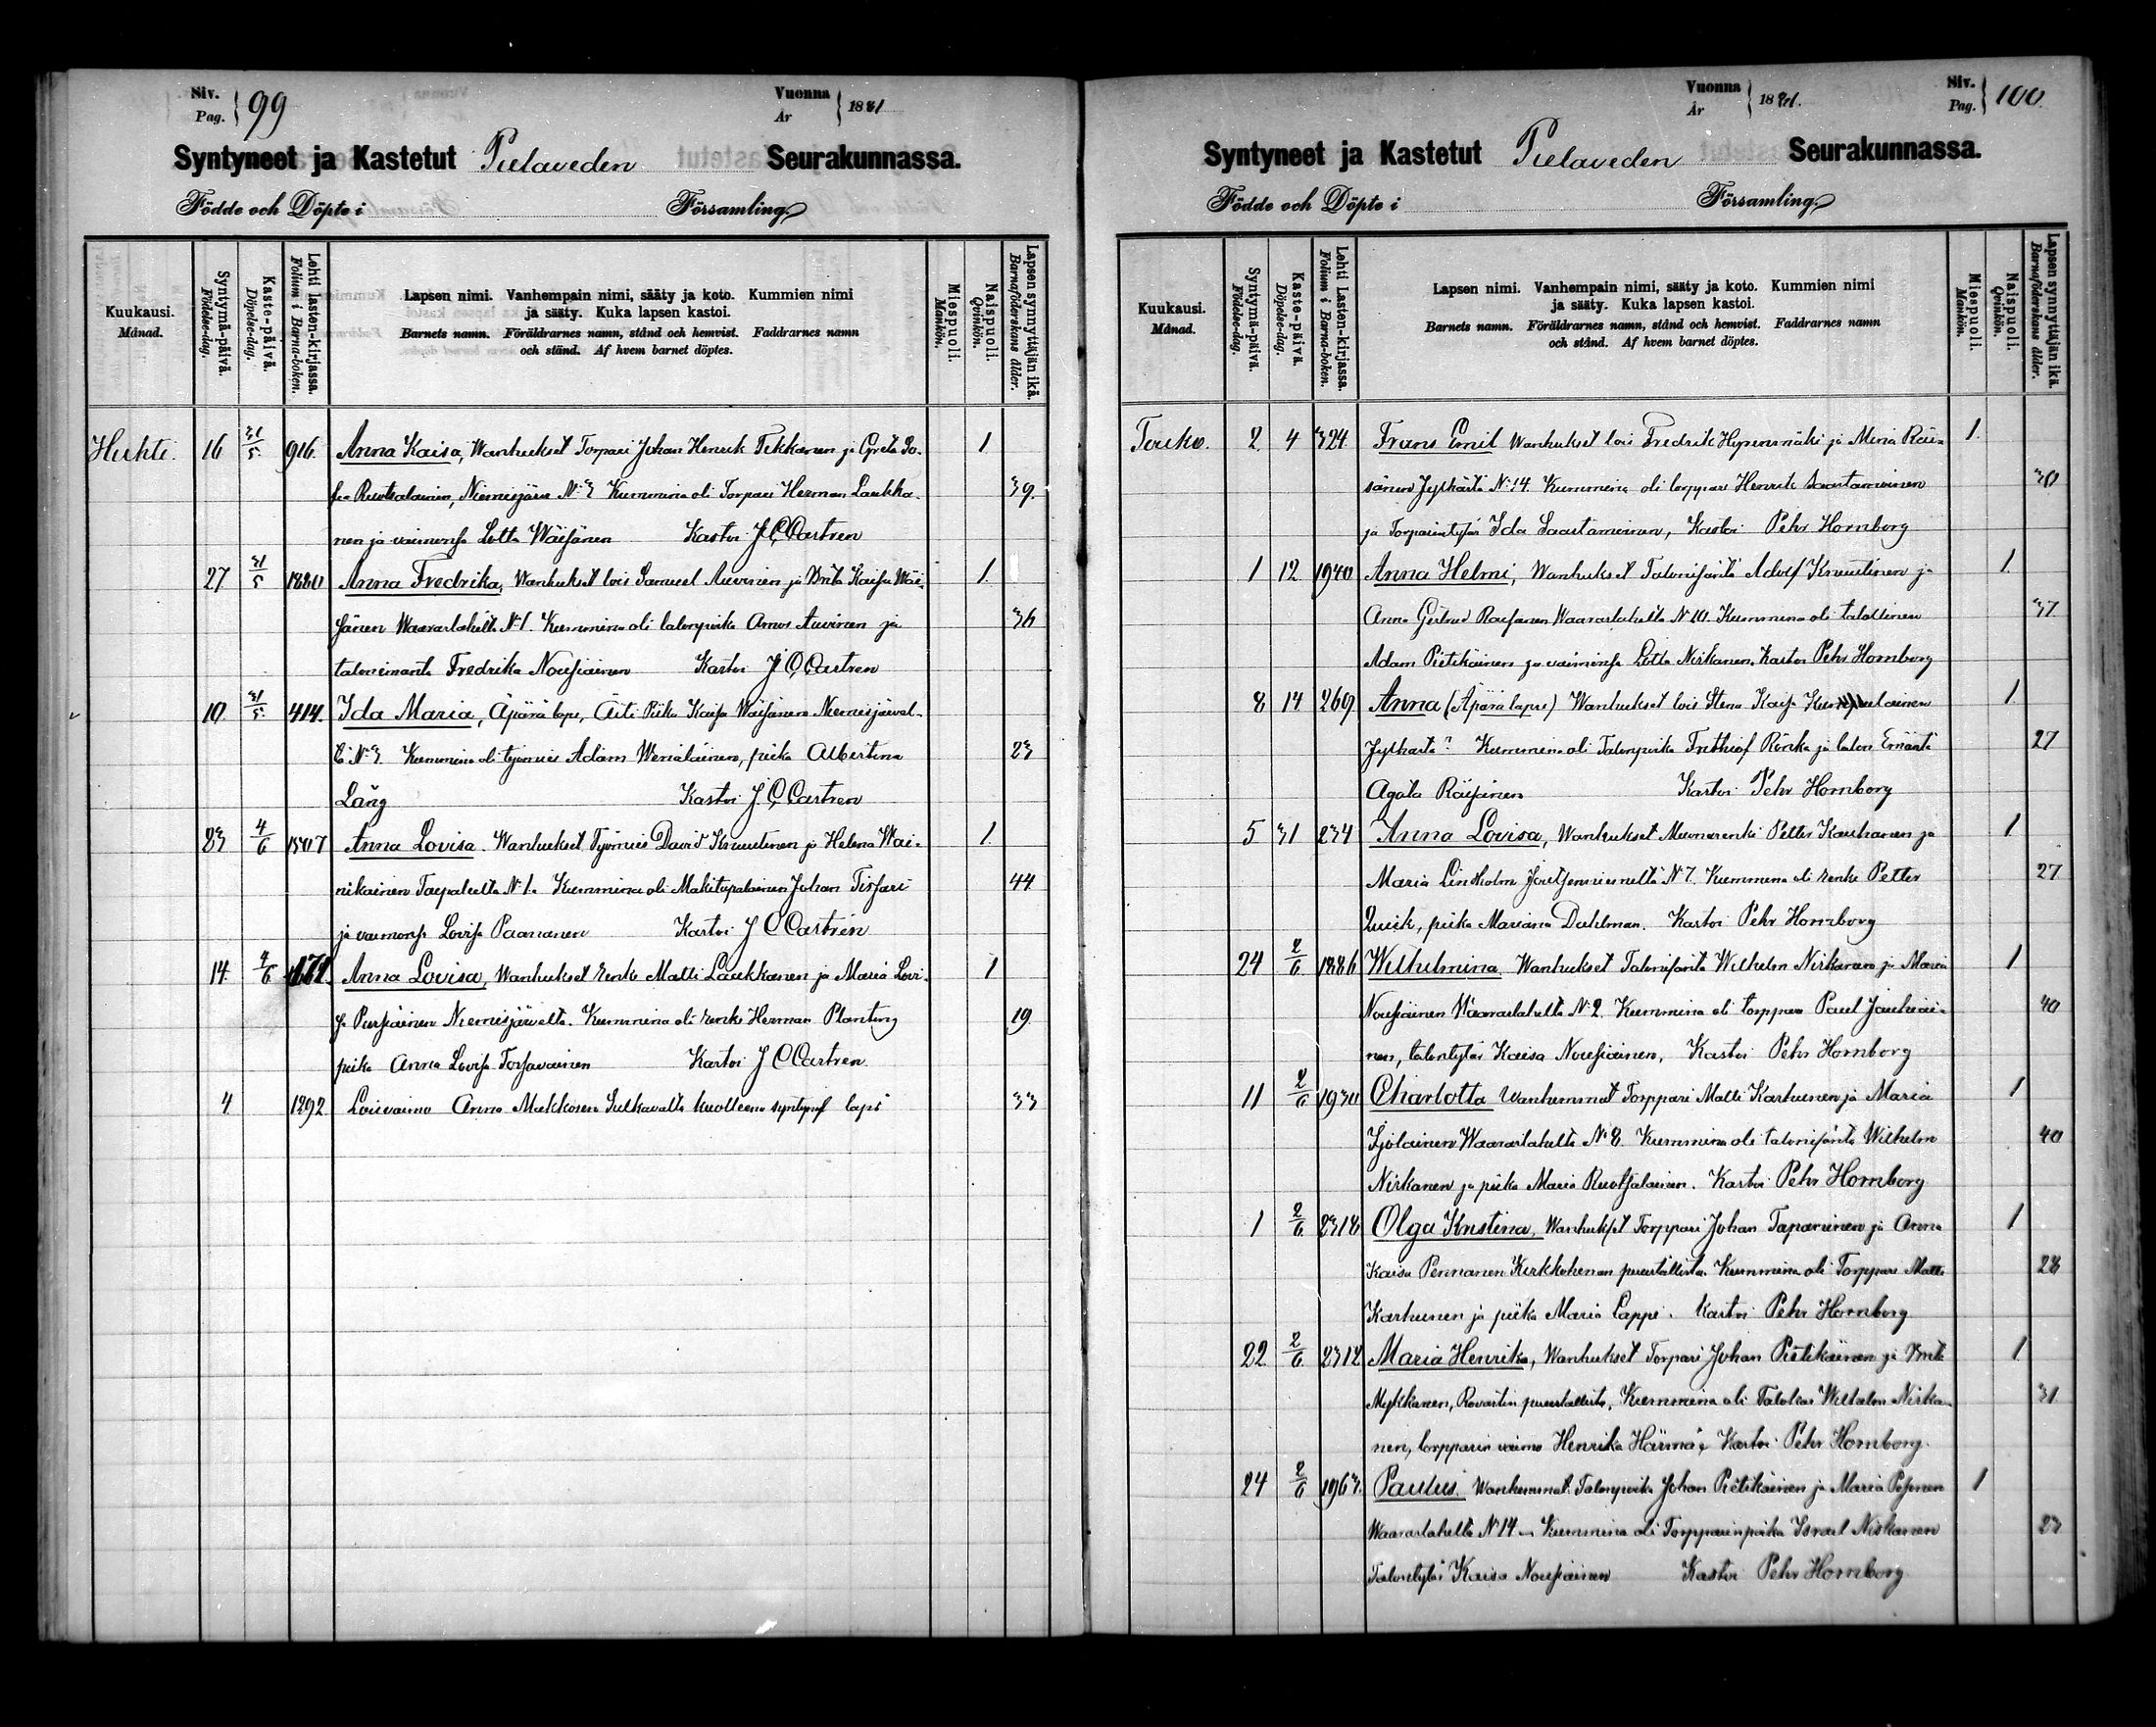 Siv. Pag. 99
Vuonna År 1881
Syntyneet ja Kastetut Pielaveden Seurakunnassa.
Födde och Döpte i Församling.
Kuukausi. Månad.
Syntymä-päivä. Födelse-dag.
Kaste-päivä. Döpelse-dag.
Lehti lasten-kirjassa. Folium i Barna-boken.
Lapsen nimi. Vanhempain nimi, sääty ja koto. Kummien nimi
ja sääty. Kuka lapsen kastoi.
Barnets namn. Föräldrarnes namn, stånd och hemvist. Faddrarnes namn
och stånd. Af hvem barnet döptes.
Miespuoli. Mankön.
Naispuoli. Qvinkön.
Lapsen synnyttäjän ikä. Barnaföderskans ålder.
Huhti. 16 31/5 916 Anna Kaisa, Wanhukset Torpari Johan Henrik Tikkanen ja Greta So- 1
fia Ruotsalainen, Niemisjärvi N:3 Kummina oli Torpari Herman Laukka- 39.
nen ja vaimonsa Lotta Wäisänen Kastoi J C Castren
27 31/5 1880 Anna Fredrika, Wanhukset lois Samuel Auvinen ja Brita Kaisa Wäi- 1.
sänen Waaraslahelta N:1. Kummina oli talonpoika Amos Auvinen ja 36
talonemäntä Fredrika Nousiainen Kastoi J C Castren
10. 31/5 414. Ida Maria, Äpärä laps, Äiti Piika Kaisa Wäisänen Niemisjärvel-
tä N:3 Kummina oli työmies Adam Wenäläinen, piika Albertina 23
Lång Kastoi J. C Castren
23 4/6 1507 Anna Lovisa. Wanhukset Työmies David Knuutinen ja Helena Wai- 1.
nikainen Taipaleelta N:1. Kummina oli Mäkitupalainen Johan Tissari 44
ja vaimonsa Lovisa Paananen Kastoi J C Castren
14. 4/6 Anna Lovisa, Wanhukset renki Matti Laukkanen ja Maria Lovi- 1
sa Pursiainen Niemisjärveltä. Kummina oli renki Herman Planting 19.
piika Anna Lovisa Korhonen Kastoi J C Castren.
4 1292 Loisvaimo Anna Mukkosen Sulkavalta kuolleena syntynyt lapsi 33
Vuonna År 1881.
Siv. Pag. 100
Syntyneet ja Kastetut Pielaveden Seurakunnassa.
Födde och Döpte i Församling.
Kuukausi. Månad.
Syntymä-päivä. Födelse-dag.
Kaste-päivä. Döpelse-dag.
Lehti Lasten-kirjassa. Folium i Barna-boken.
Lapsen nimi. Vanhempain nimi, sääty ja koto. Kummien nimi
ja sääty. Kuka lapsen kastoi.
Barnets namn. Föräldrarnes namn, stånd och hemvist. Faddrarnes namn
och stånd. Af hvem barnet döptes.
Miespuoli. Mankön.
Naispuoli. Qvinkön.
Lapsen synnyttäjän ikä. Barnaföderskans ålder.
Touko. 2 4 324. Frans Emil Wanhukset lois Fredrik Hyvönmäki ja Miina Räi- 1.
sänen Jylhästä N:14. Kummina oli torppari Henrik Saastamoinen 30
ja Torparintytär Ida Saastamoinen, Kastoi Pehr Hornborg
1 12 1940 Anna Helmi, Wanhukset Talonisäntä Adolf Knuutinen ja 1.
Anna Gertrud Rossinen Waaraslahelta N:10. Kummina oli talollinen 37
Adam Pietikäinen ja vaimonsa Lotta Niskanen, Kastoi Pehr Hornborg
8 14 269 Anna (Äpärä lapsi) Wanhukset lois Stina Kaisa 1.
Jylhästä? Kummina oli Talonpoika Frithiof Rönkä ja talon Emäntä 27
Agata Räisänen Kastoi Pehr Hornborg
5 31 234 Anna Lovisa, Wanhukset Muonarenki Petter Kauhanen ja 1
Maria Lindholm Joutsenniemeltä N:7. Kummina oli renki Petter 27
Quick, piika Mariana Dahlman. Kastoi Pehr Hornborg
24 2/6 1886 Wilhelmina, Wanhukset Talonisäntä Wilhelm Niskanen ja Maria 1
Nousiainen Waaraslahelta N:2. Kummina oli torppari Paul Jauhiai- 40
nen, talontytär Kaisa Nousiainen, Kastoi Pehr Hornborg
11 2/6 1930 Charlotta Wanhemmat Torppari Matti Karhunen ja Maria 1
Lyölainen Waaraslahelta N:8. Kummina oli talonisäntä Wilhelm 40
Niskanen ja piika Maria Ruotsalainen. Kastoi Pehr Hornborg
1 2/6 2318 Olga Kristina, Wanhukset Torppari Johan Tapaninen ja Anna 1
Kaisa Pennanen Kirkkoherran puustallista. Kummina oli Torppari Matti 28
Karhunen ja piika Maria Lappi. Kastoi Pehr Hornborg
22 2/6 2312 Maria Henrika, Wanhukset Torpari Johan Pietikäinen ja Brita 1.
Mykkänen, Rovastin puustallista, Kummina oli Talokas Wilhelm Niska- 31
nen, torpparin vaimo Henrika Härmä, Kastoi Pehr Hornborg.
24 2/6 1963. Paulus. Wanhemmat Talonpoika Johan Pietikäinen ja Maria Popinen 1
Waaraslahelta N:14 – Kummina oli Torpparinpoika Israel Niskanen 23
Talontytär Kaisa Nousiainen Kastoi Pehr Hornborg